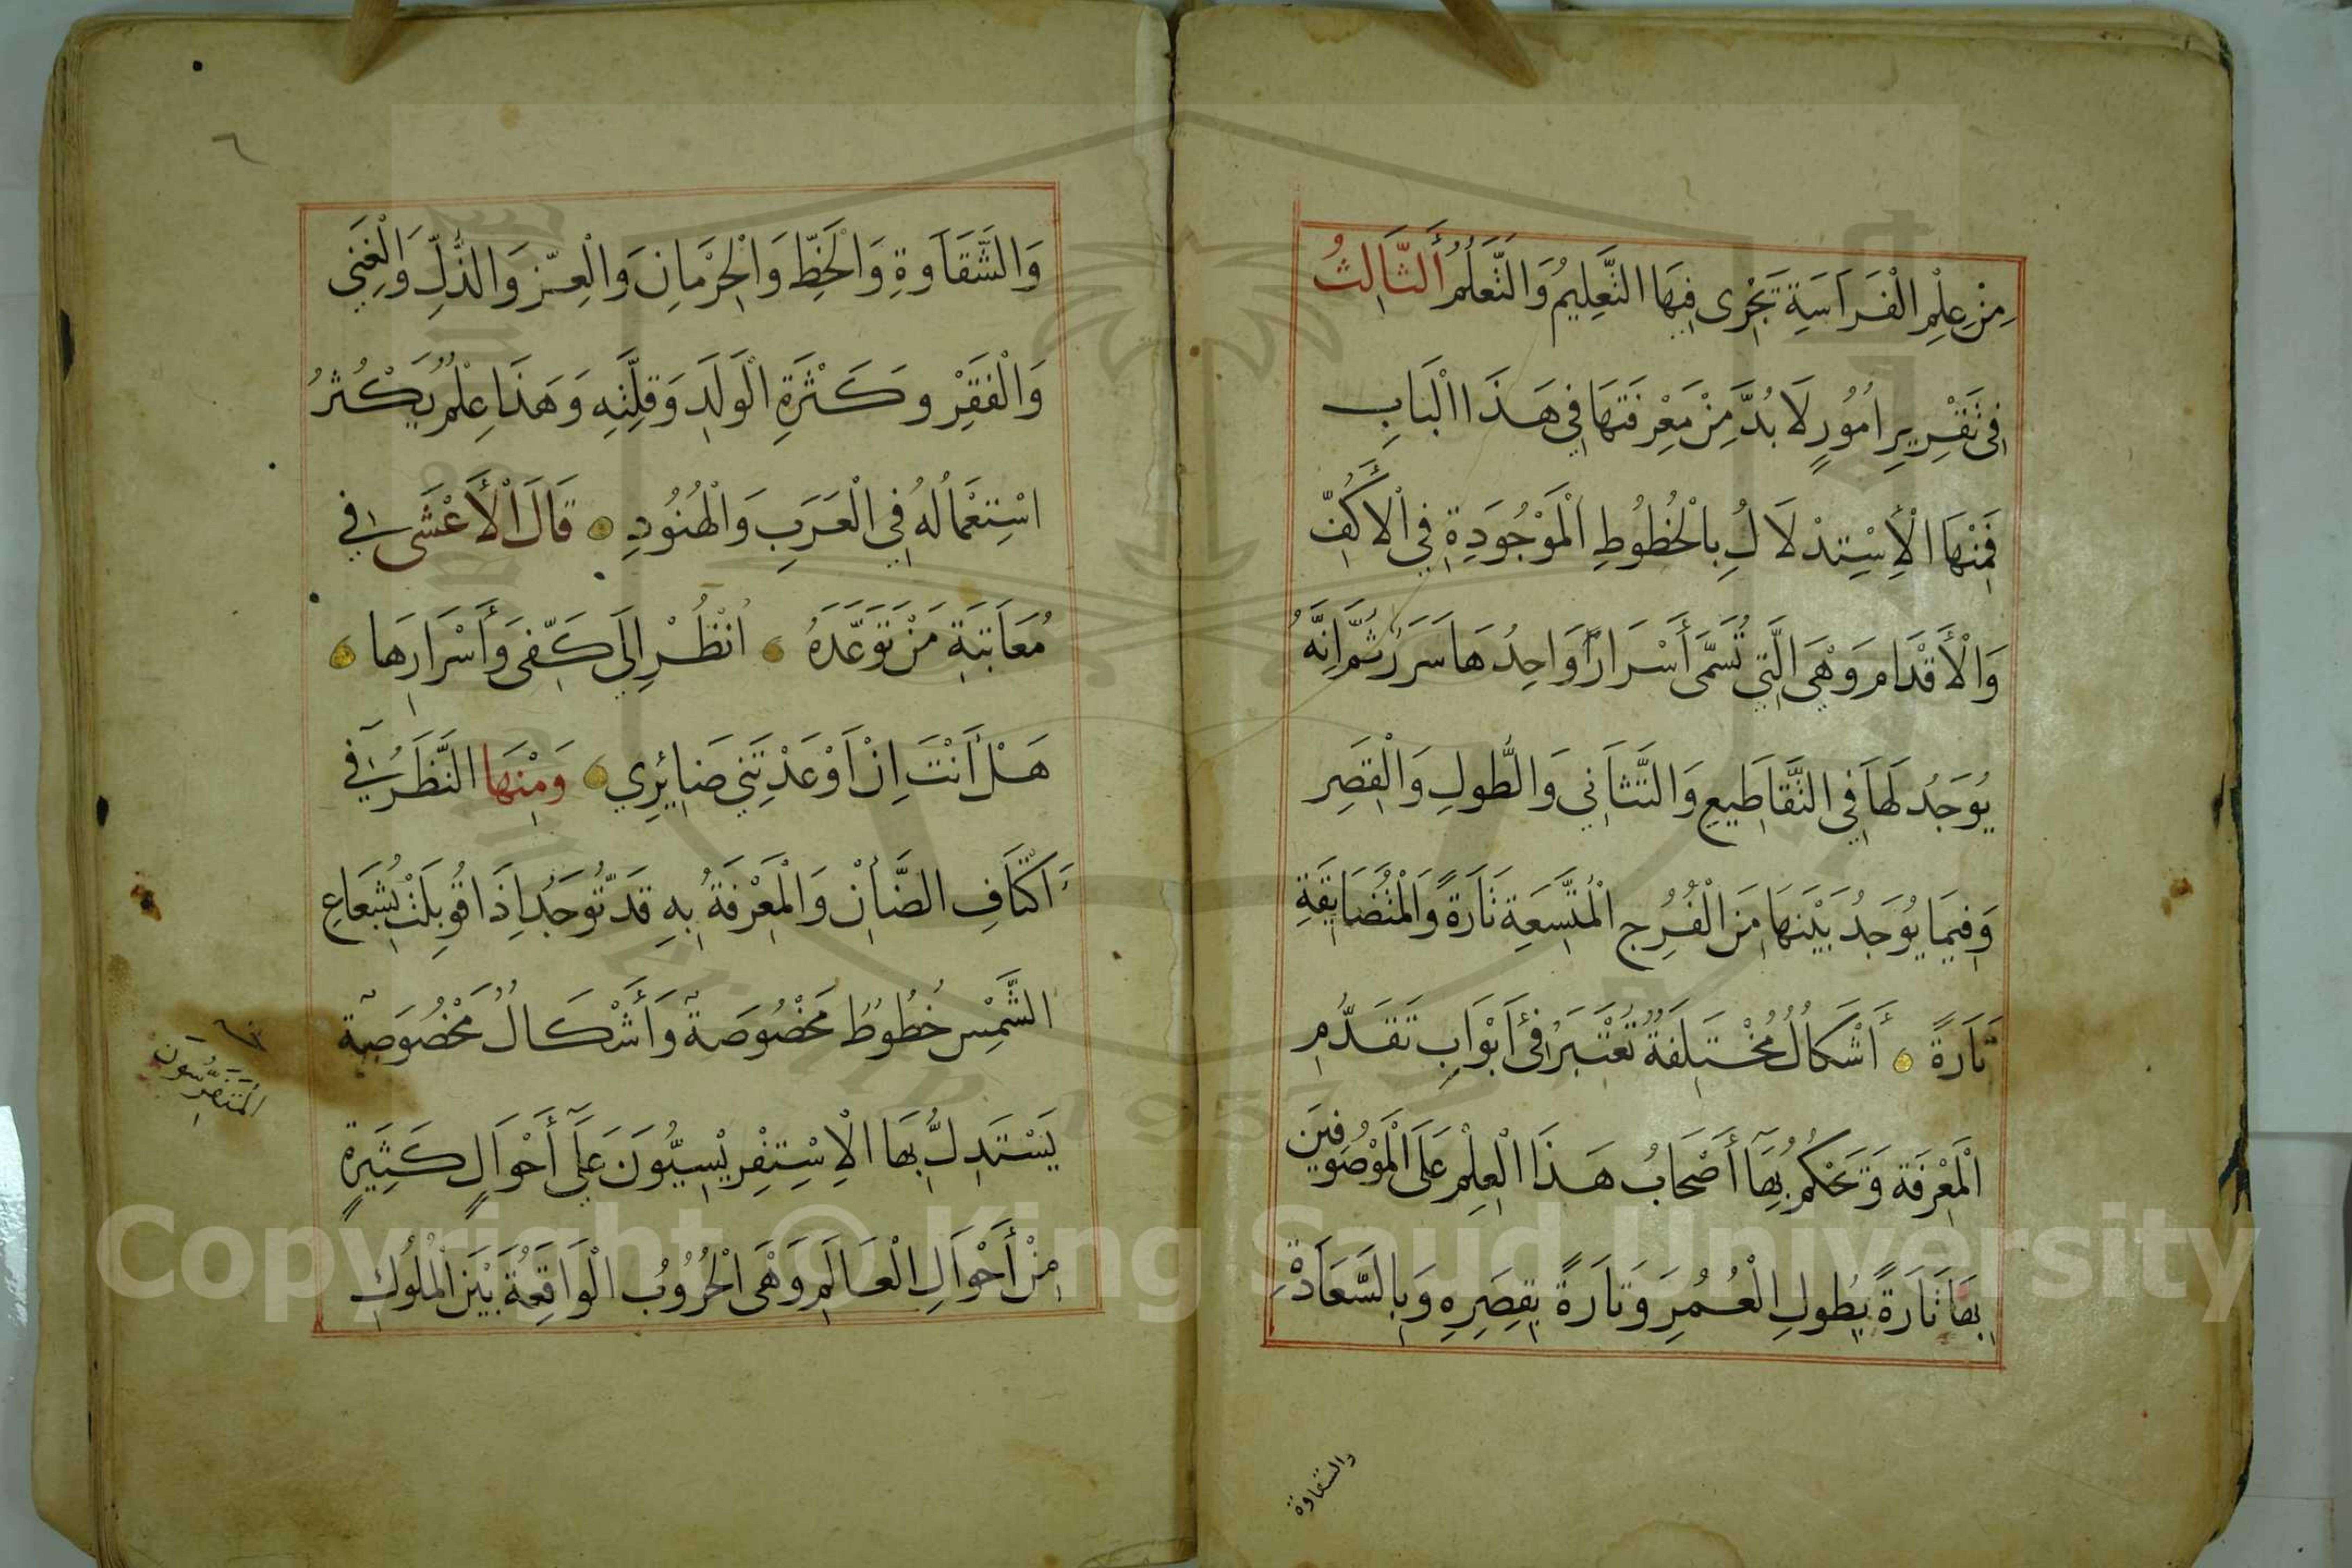 مِنْ عِلْمِ الْفَرَاسَةِ تَجْرِى فِيهَا التَّعْلِيمُ وَالتَّعَلُّمُ الثَّالِثُ
فِى تَقْرِيرِ اُمُورٍ لَا بُدَّ مِنْ مَعْرِفَتِهَا فِي هَذَا الْبَابِ
فَمِنْهَا الْاِسْتِدْلَالُ بِالْخُطُوطِ الْمَوْجُودَةِ فِي الْأَكُفِّ
وَالْأَقْدَامِ وَهْىَ الَّتِي تُسَمَّى أَسْرَارًا وَاحِدُهَا سَرَرٌ ثُمَّ اِنَّهُ
يُوجَدُ لَهَا فِي التَّقَاطِيعِ وَالتَّثَانِي وَالطُّولِ وَالْقِصَرِ
وَفِيمَا يُوجَدُ بَيْنَهَا مِنَ الْفُرُجِ الْمُتَّسِعَةِ تَارَةً وَالْمُتَضَايِقَةِ
تَارَةً أَشْكَالٌ مُخْتَلِفَةٌ تُعْتَبَرُ فِى أَبْوَابِ تَقَدُّمِ
الْمَعْرِفَةِ وَتَحْكُمُ بِهَا أَصْحَابُ هَذَا الْعِلْمِ عَلَى الْمَوْصُوفِينَ
بِهَا تَارَةً بِطُولِ الْعُمُرِ وَتَارَةً بِقِصَرِهِ وَبِالسَّعَادَةِ
والشقاوة
٦
وَالشَّقَاوَةِ وَالْحَظِّ وَالْحِرْمَانِ وَالْعِزِّ وَالذُّلِّ وَالْغِنَي
وَالْفَقْرِ وَكَثْرَةِ الْوَلَدِ وَقِلَّتِهِ وَهَذَا عِلْمٌ يَكْثُرُ
اسْتِعْمَالُهُ فِي الْعَرَبِ وَالْهُنُودِ قَالَ الْأَعْشَى فِي
مُعَاتَبَةِ مَنْ تَوَعَّدَهُ اُنْظُرْ اِلَي كَفِّى وَأَسْرَارِهَا
هَلْ أَنْتَ اِنْ اَوْعَدْتَنِي ضَايِرِي وَمِنْهَا النَّظَرُ فِي
اَكْتَافِ الضَّأْنِ وَالْمَعْرِفَةُ بِهِ قَدْ تُوجَدُ اِذَا قُوبِلَتْ بِشُعَاعِ
الشَّمْسِ خُطُوطٌ مَخْصُوصَةٌ وَأَشْكَالٌ مَخْصُوصَةٌ
يَسْتَدِلُّ بِهَا الْاِسْتِفْرِيْسِيُّونَ عَلَى أَحْوَالٍ كَثِيرَةٍ
المتفرّسون
مِنْ أَحْوَالِ الْعَالَمِ وَهْىَ الْحُرُوبُ الْوَاقِعَةُ بَيْنَ الْمُلُوكِ
Copyright © King Saud University
1957